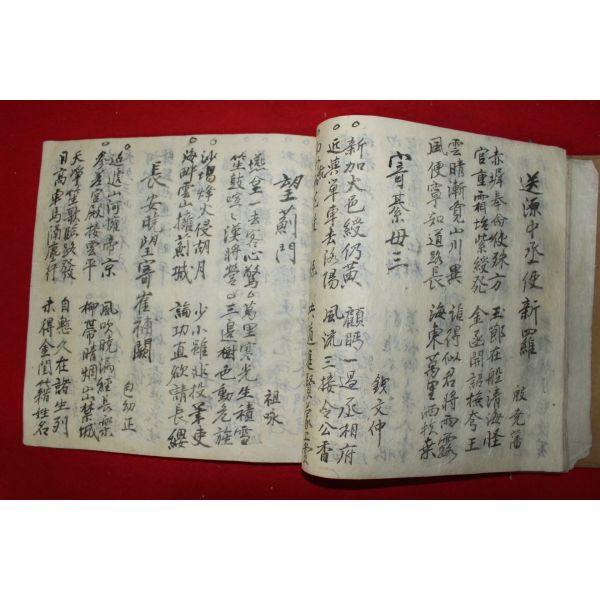 送源中丞使新羅
殷堯藩
赤墀奉命使殊方 玉節在船清海怪
官重霜坮紫綬光 金函開詔拜夸王
雲晴漸覓山川異 誰得似君將雨露
風便寧知道路長 海東萬里洒扶桒
寄綦毋三
錢文仲
新加大邑綬仍黃 顧眄一過丞相府
近與單車去洛陽 風流三接令公香
共道進賢蒙上賞
望薊門
祖咏
燕坮一去客心驚 萬里寒光生積雪
笙鼓喧〻漢將營 三邊曙色動危旌
沙場烽火侵胡月 少小雖非投筆吏
海畔雲山擁薊城 論功直欲請長纓
長安曉望寄崔補闕
包幼正
迢遞山河擁帝京 風吹曉漏經長樂
參差宮殿接雲平 柳帶晴烟出禁城
天淨笙歌臨路發 自慙久在諸生列
日高車馬隔塵行 未得金閨籍姓名